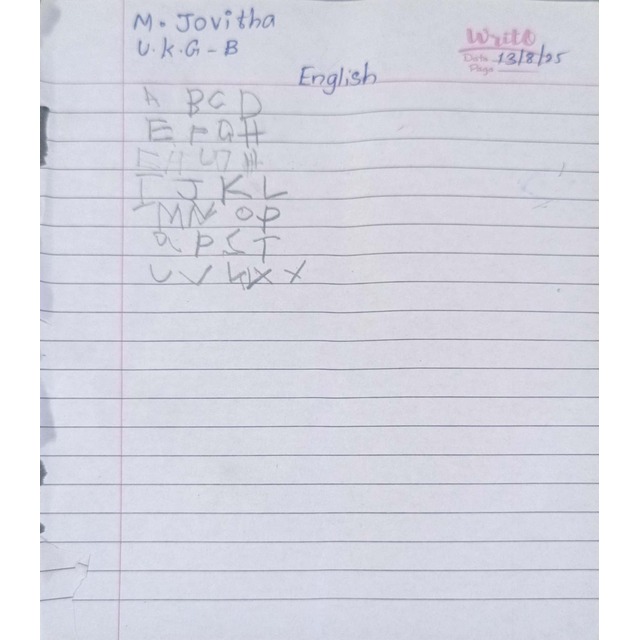 M. Jovitha
U.K.G - B
Write
Date 13/8/25
Page
English
A B C D
E F G H
I J K L
M N O P
Q P S T
U V W X X